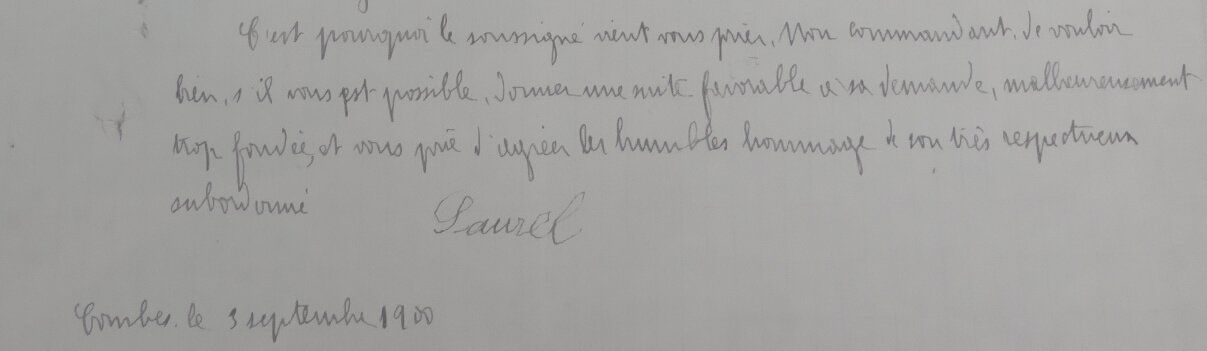 C'est pourquoi le soussigné vient vous prier, Mon commandant, de vouloir
bien, s'il vous est possible, donner une suite favorable à sa demande, malheureusement
trop fondée, et vous prie d'agréer les humbles hommage de son très respectueux
subordonné
Saurel
Combes, le 3 septembre 1900